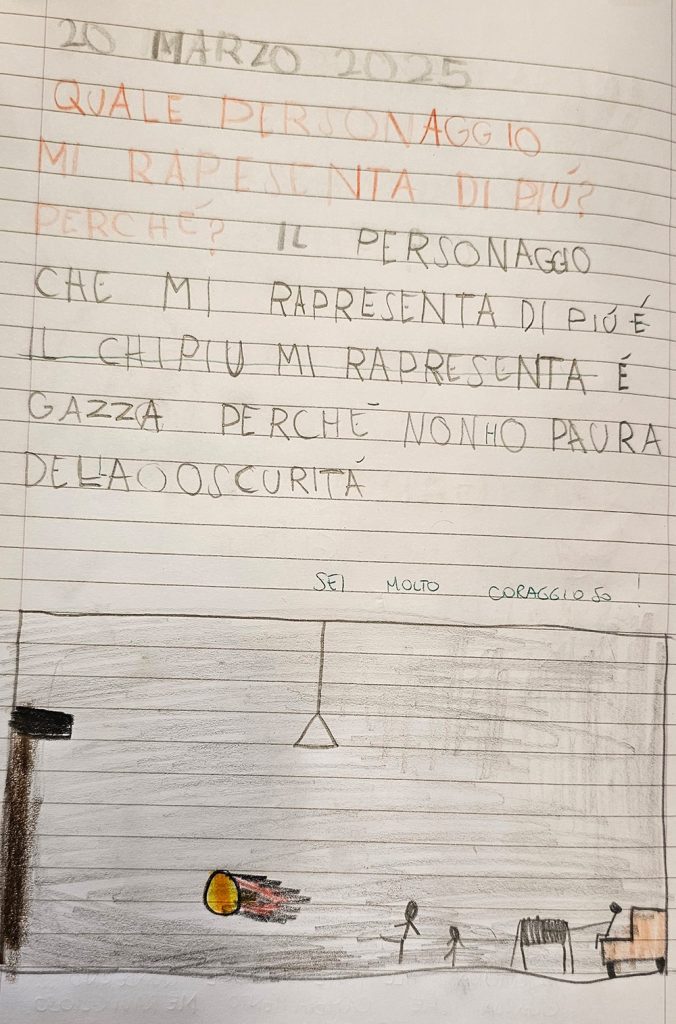 20 MARZO 2025
QUALE PERSONAGGIO
MI RAPESENTA DI PIÚ?
PERCHÉ? IL PERSONAGGIO
CHE MI RAPRESENTA DI PIÚ É
IL CHIPIU MI RAPRESENTA É
GAZZA PERCHÉ NON HO PAURA
DELLA OOSCURITÁ
SEI MOLTO CORAGGIOSO!